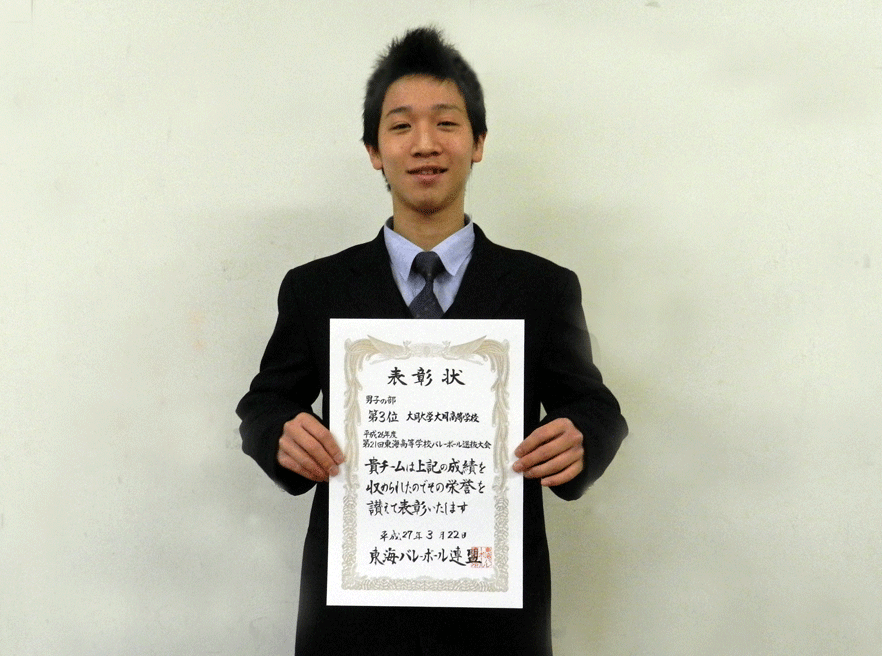 表彰状
男子の部
第3位 大同大学大同高等学校
平成26年度
第21回東海高等学校バレーボール選抜大会
貴チームは上記の成績を
収められたのでその栄誉を
讃えて表彰いたします
平成27年3月22日
東海バレーボール連盟